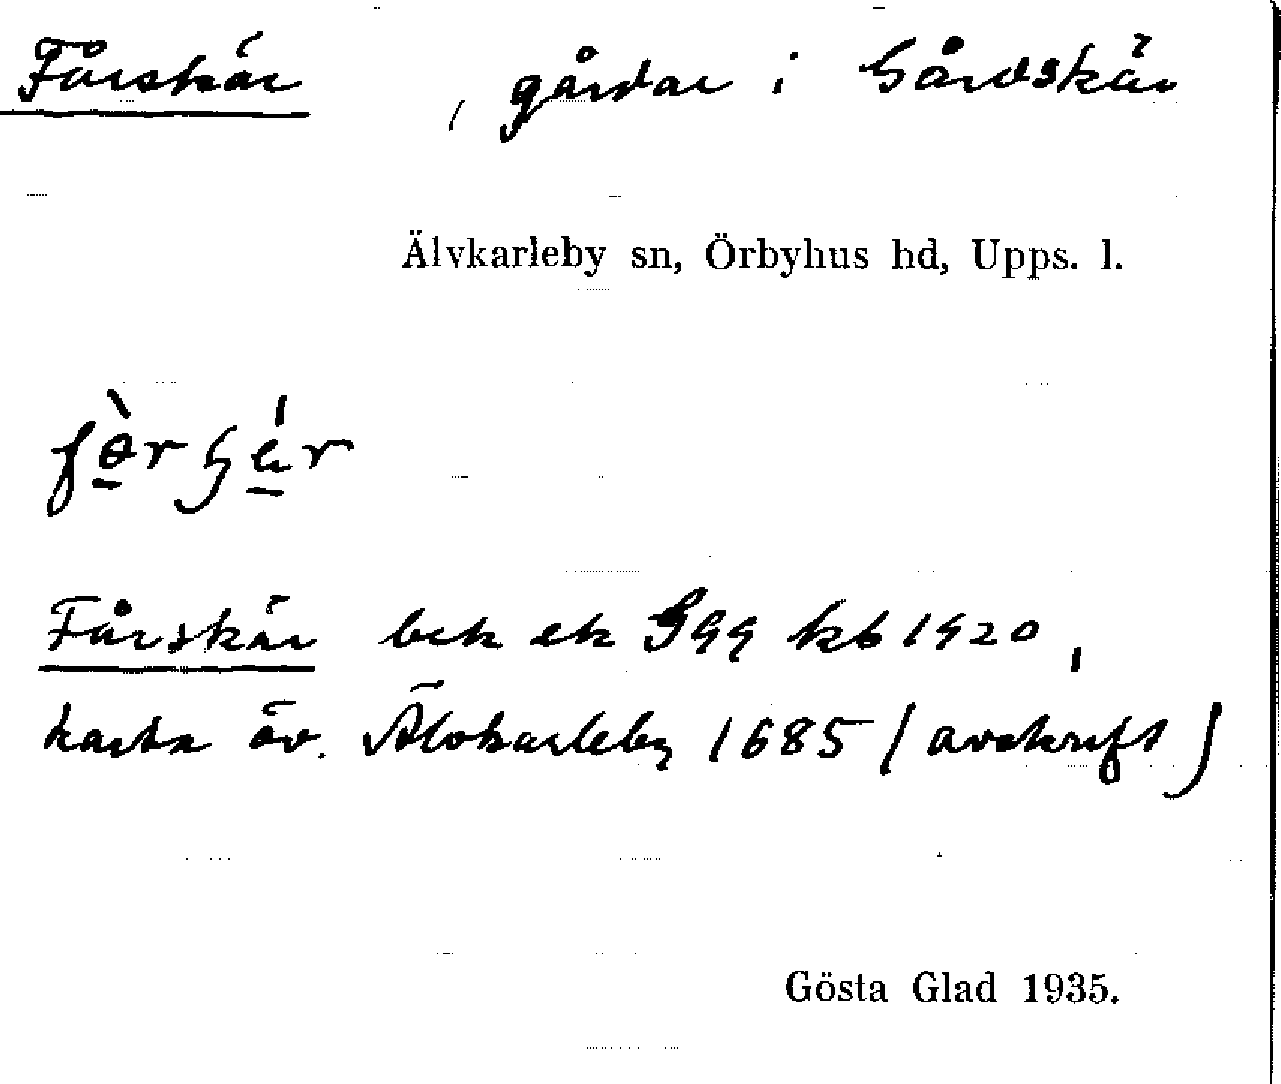 Fårskär , gårdar i Gårdskär
Älvkarleby sn, Örbyhus hd, Upps. l.
Fårskär bek ek Ggq kb 1920,
karta öv. Älvkarleby 1685 (avskrift)
Gösta Glad 1935.